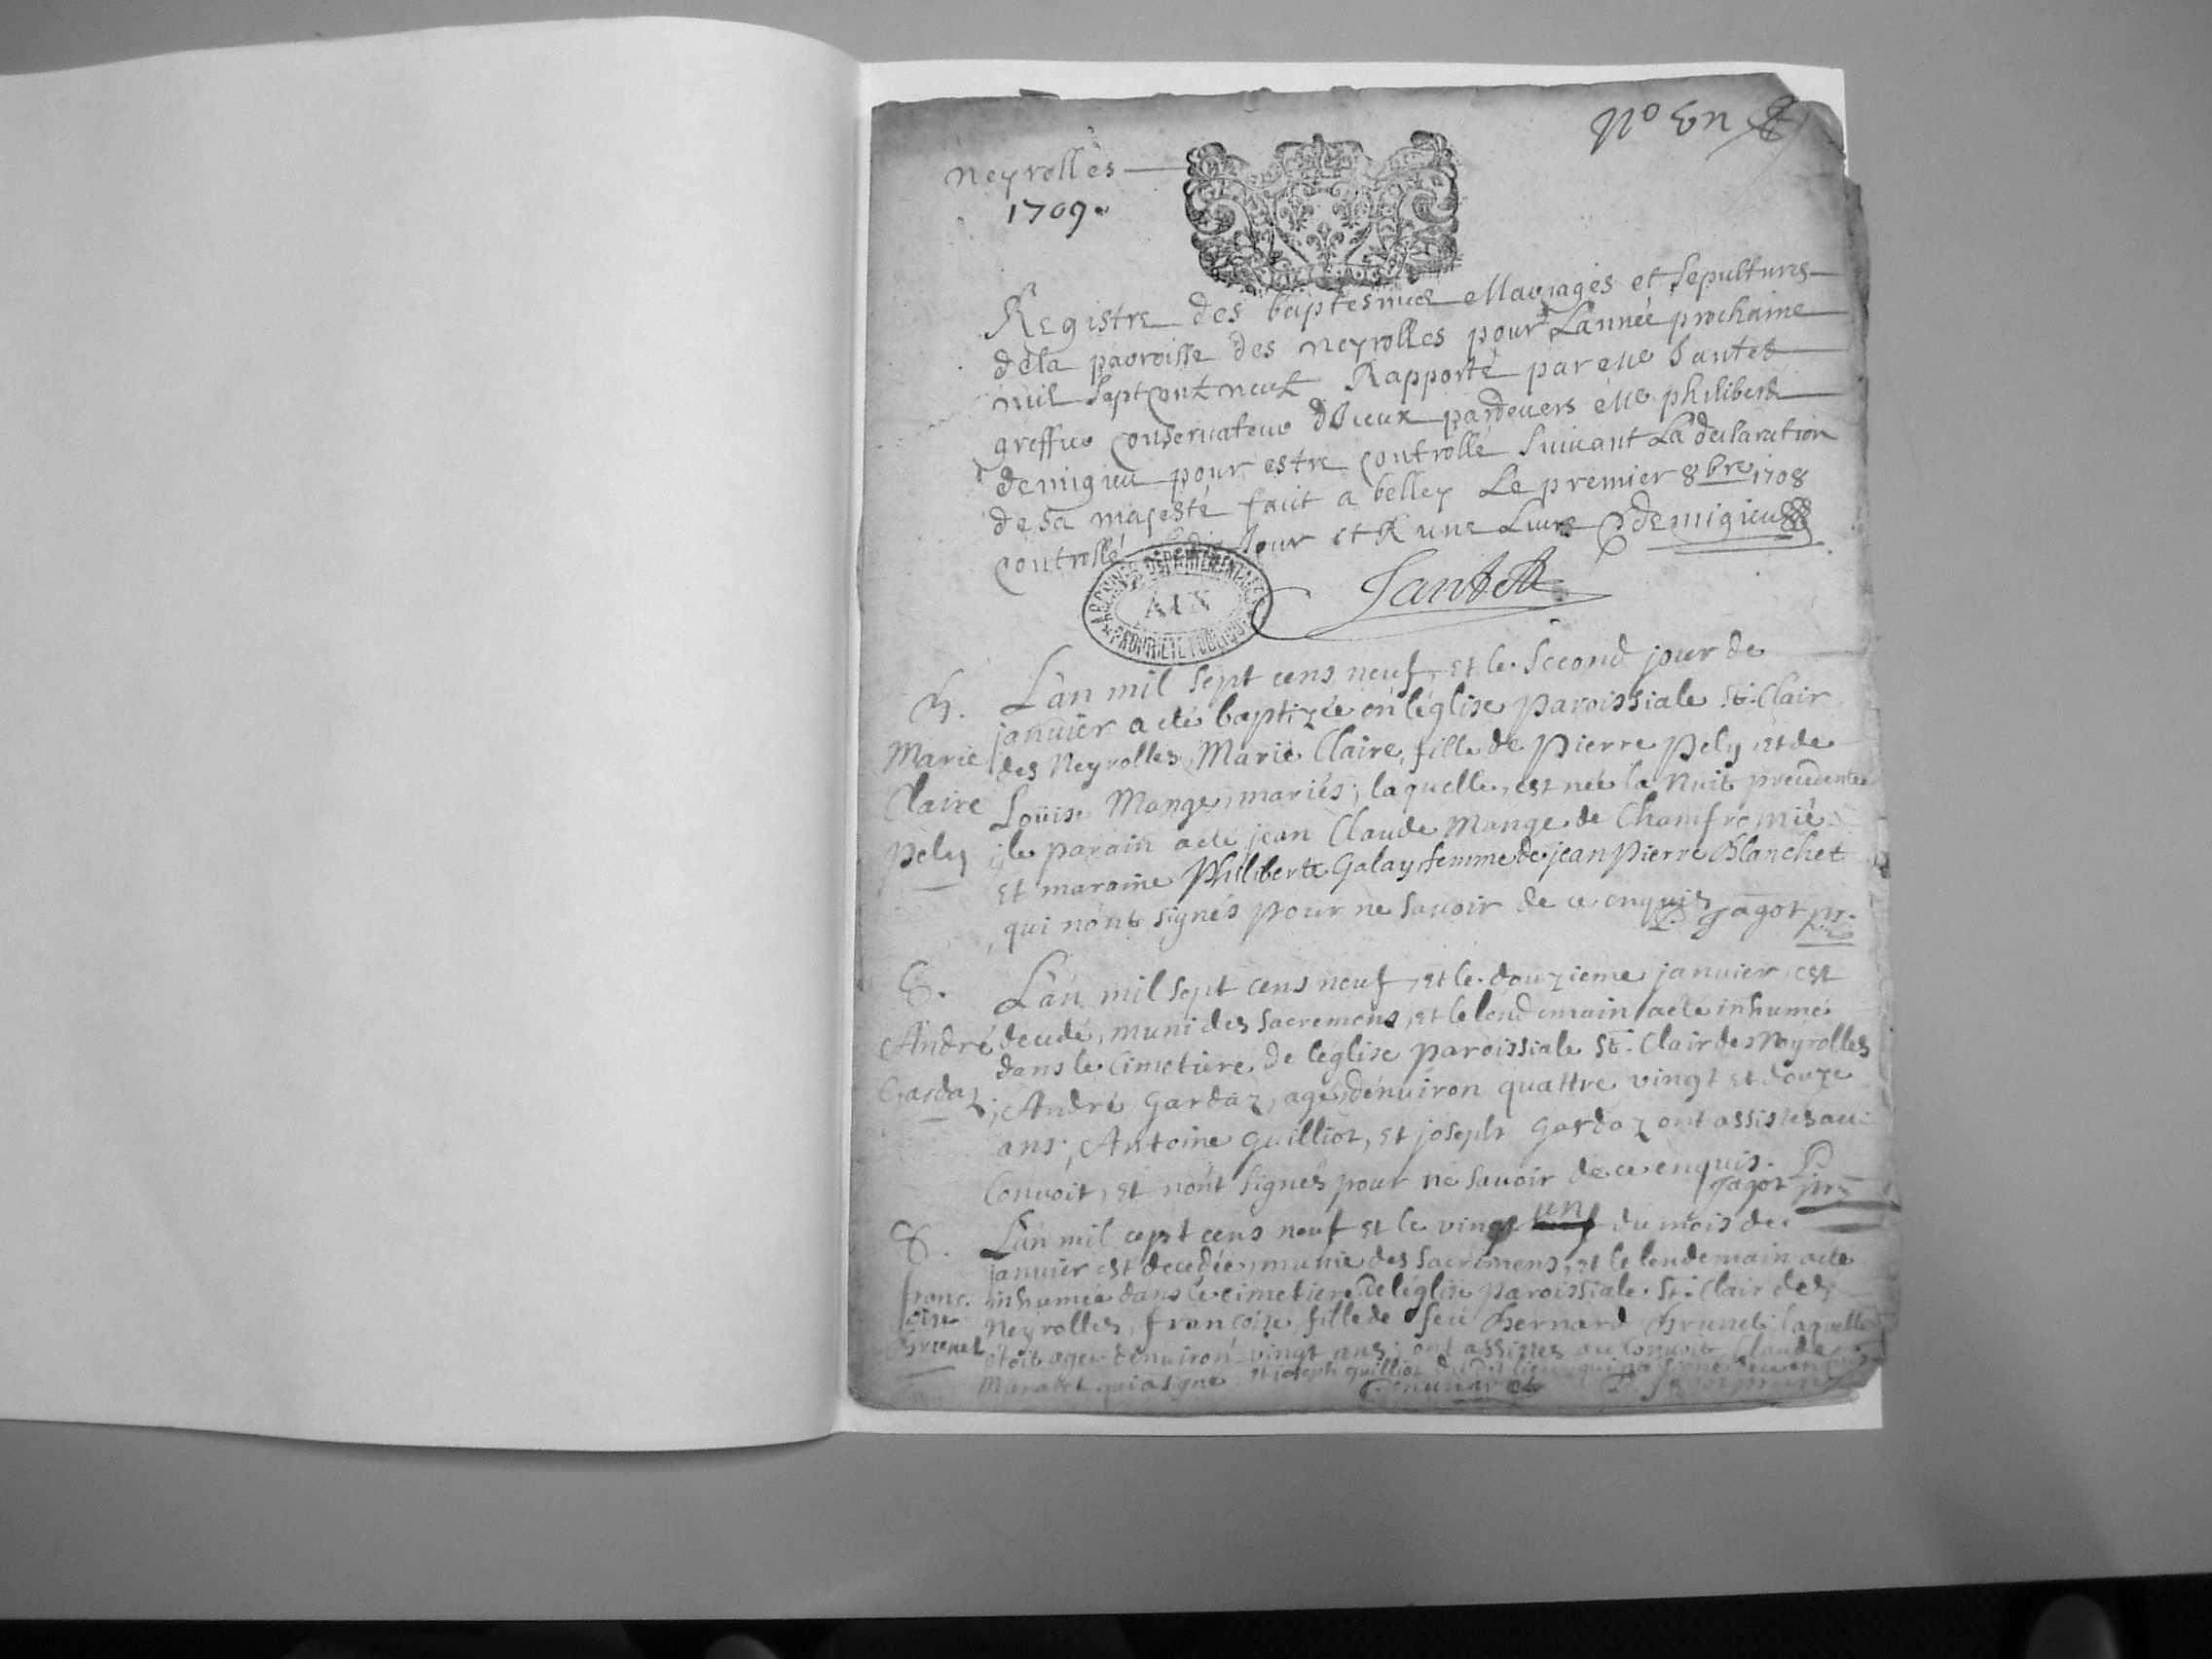 No Un
Neyrolles
1709.
Registre des baptesmes Mariages et Sepultures
de la parroisse des neyrolles pour Lannée prochaine
mil Sept cent neuf Rapporté par Me Santet
greffier conservateur d'Iceux pardevers Me philibert
demigieu pour estre controllé Suivant La declaration
de sa majesté fait a belley Le premier 8bre 1708
controllé jour et R une Livre demigieu
Santet
ARCHIVES DEPARTEMENTALES
AIN
PROPRIETE PUBLIQUE
L'an mil sept cens neuf, et le second jour de
janvier a eté baptizée en l'église paroissiale St. Clair
des Neyrolles, Marie Claire, fille de Pierre Pely, et de
Loüise Mange, mariés; laquelle, est née la nuit precedente
; le parain a eté jean Claude Mange de Chamfromié
et maraine Philiberte Galay femme de jean Pierre Blanchet
qui n'ont signés pour ne savoir de ce enquis Jagot ptr.
Marie
Claire
Pely
L'an mil sept cens neuf, et le douzieme janvier, est
decedé, muni des sacremens, et le lendemain a eté inhumé
dans le cimetiere de l'église paroissiale St. Clair des Neyrolles
; André Gardaz, agé d'environ quattre vingt et douze
ans; Antoine Guilliot, et joseph Gardaz ont assistés au
Convoit, et n'ont signés pour ne savoir de ce enquis. Jagot ptr
André
Gardaz
S.
L'an mil cept cens neuf et le vingt un du mois de
janvier est decedée, munie des sacremens, et le lendemain a eté
inhumée dans le cimetiere de l'église paroissiale St. Clair des
Neyrolles, françoise, fille de feu Bernard Brunet, laquelle
étoit agée d'environ vingt ans; ont assistés au Convoit Claude
qui a signé, et joseph guilliot
franc.
oise
Brunet